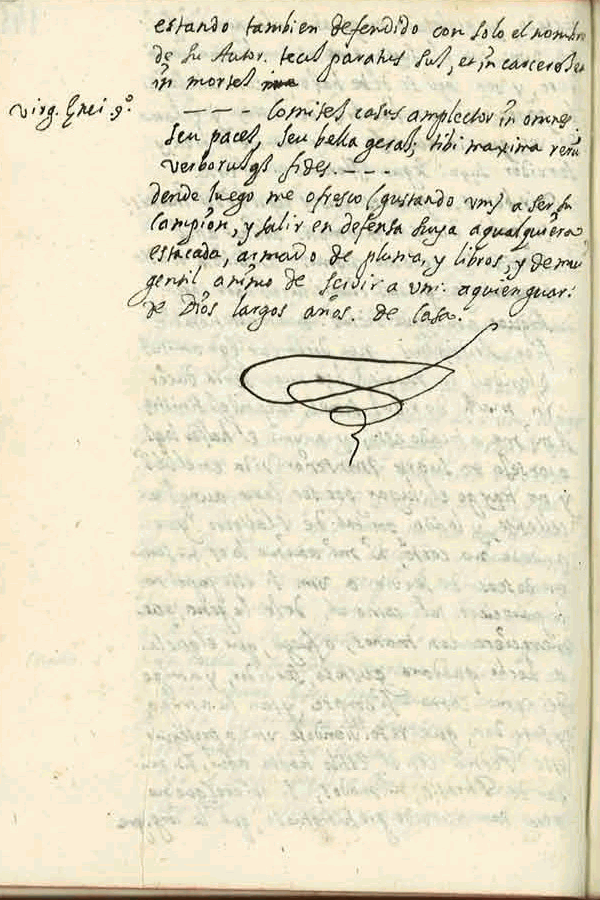 estando tambien defendido con solo el nombre
de su Autor. tecū paratus sū, et in carcerē et
in mortē
Virg. Enei. 9º.
- - - Comitē casus amplector in omnes.
seu pacē, seu bella gerā; tibi maxima rerū
verborūq3 fides. - - -
desde luego me ofresco (gustando vm) a ser su
campion, y salir en defensa suya a qualquiera
estacada, armado de pluma, y libros, y de mui
gentil animo de servir a vm. a quien guar.
de Dios largos años. de Casa.